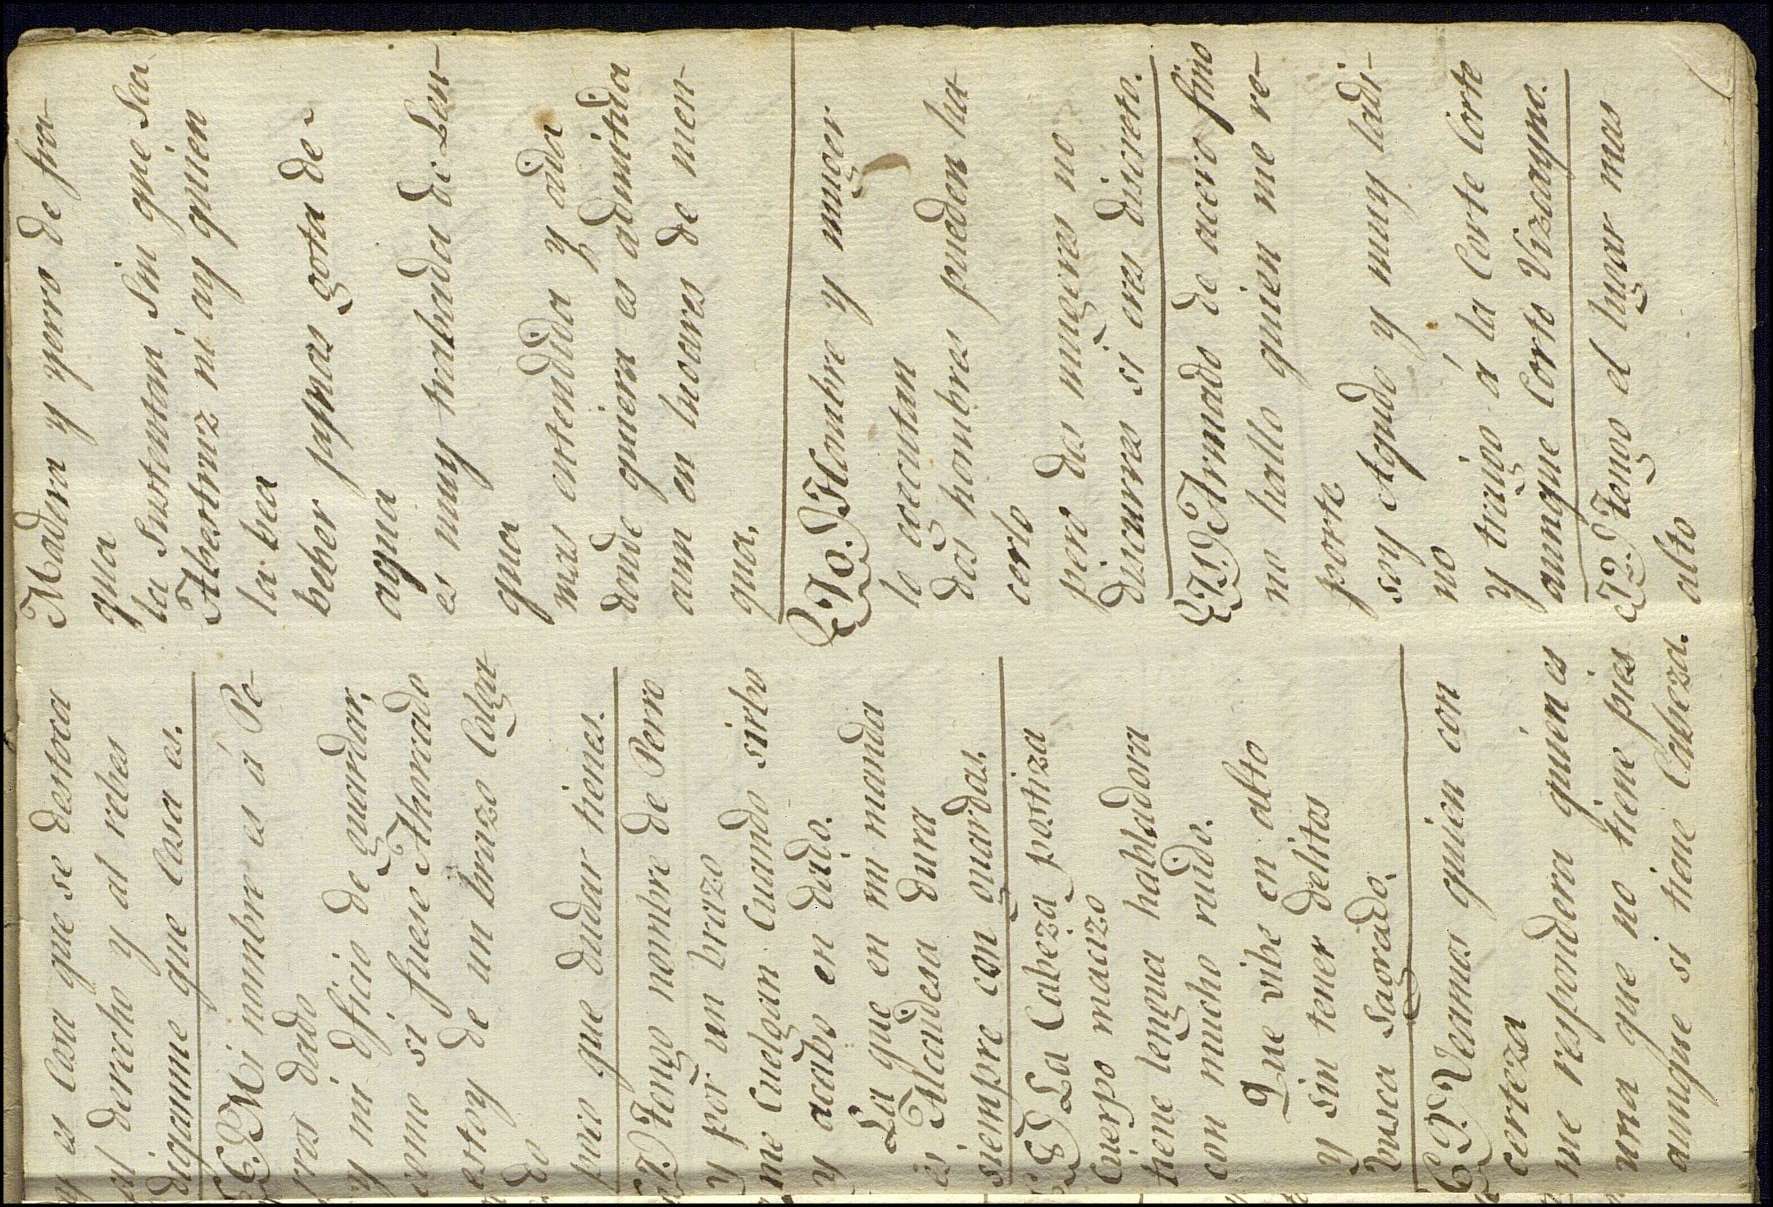 y es Cosa que se destroca
al derecho y al rebes
diganme que Cosa es.
6. Mi nombre es á Pe-
rros dado
y mi oficio de guardar,
como si fuese Ahorcado
estoy de un brazo Colga
do
pues que dudar tienes.
7. Tengo nombre de Perro
y por un brazo
me Cuelgan Cuando sirbo
y acabo en dado.
La que en mi manda
es Alcaidesa dura
siempre con guardas.
8. La Cabeza postiza
Cuerpo macizo
tiene lengua habladora
con mucho ruido.
Que vibe en alto
y sin tener delitos
busca Sagrado.
9. Veamos quien con
certeza
me respondera quien es
una que no tiene pies
aunque si tiene Cabeza.
Madera y yerro de fra
gua
la Sustentan Sin que Sea
Abestruz ni ay quien
la bea
beber jasmas gota de
agua
es muy trabada de Len-
gua
mas entendida y oida
donde quiera es admitida
aun en lugares de men-
gua.
10. Hombre y muger
lo egecutan
dos hombres pueden ha-
cerlo
pero dos mugeres no
discurres si eres discreto.
11. Armado de acero fino
no hallo quien me re-
porte
soy Agudo y muy ladi-
no
y traigo á la Corte Corte
aunque Corto Vizcayno.
12. Tengo el lugar mas
alto